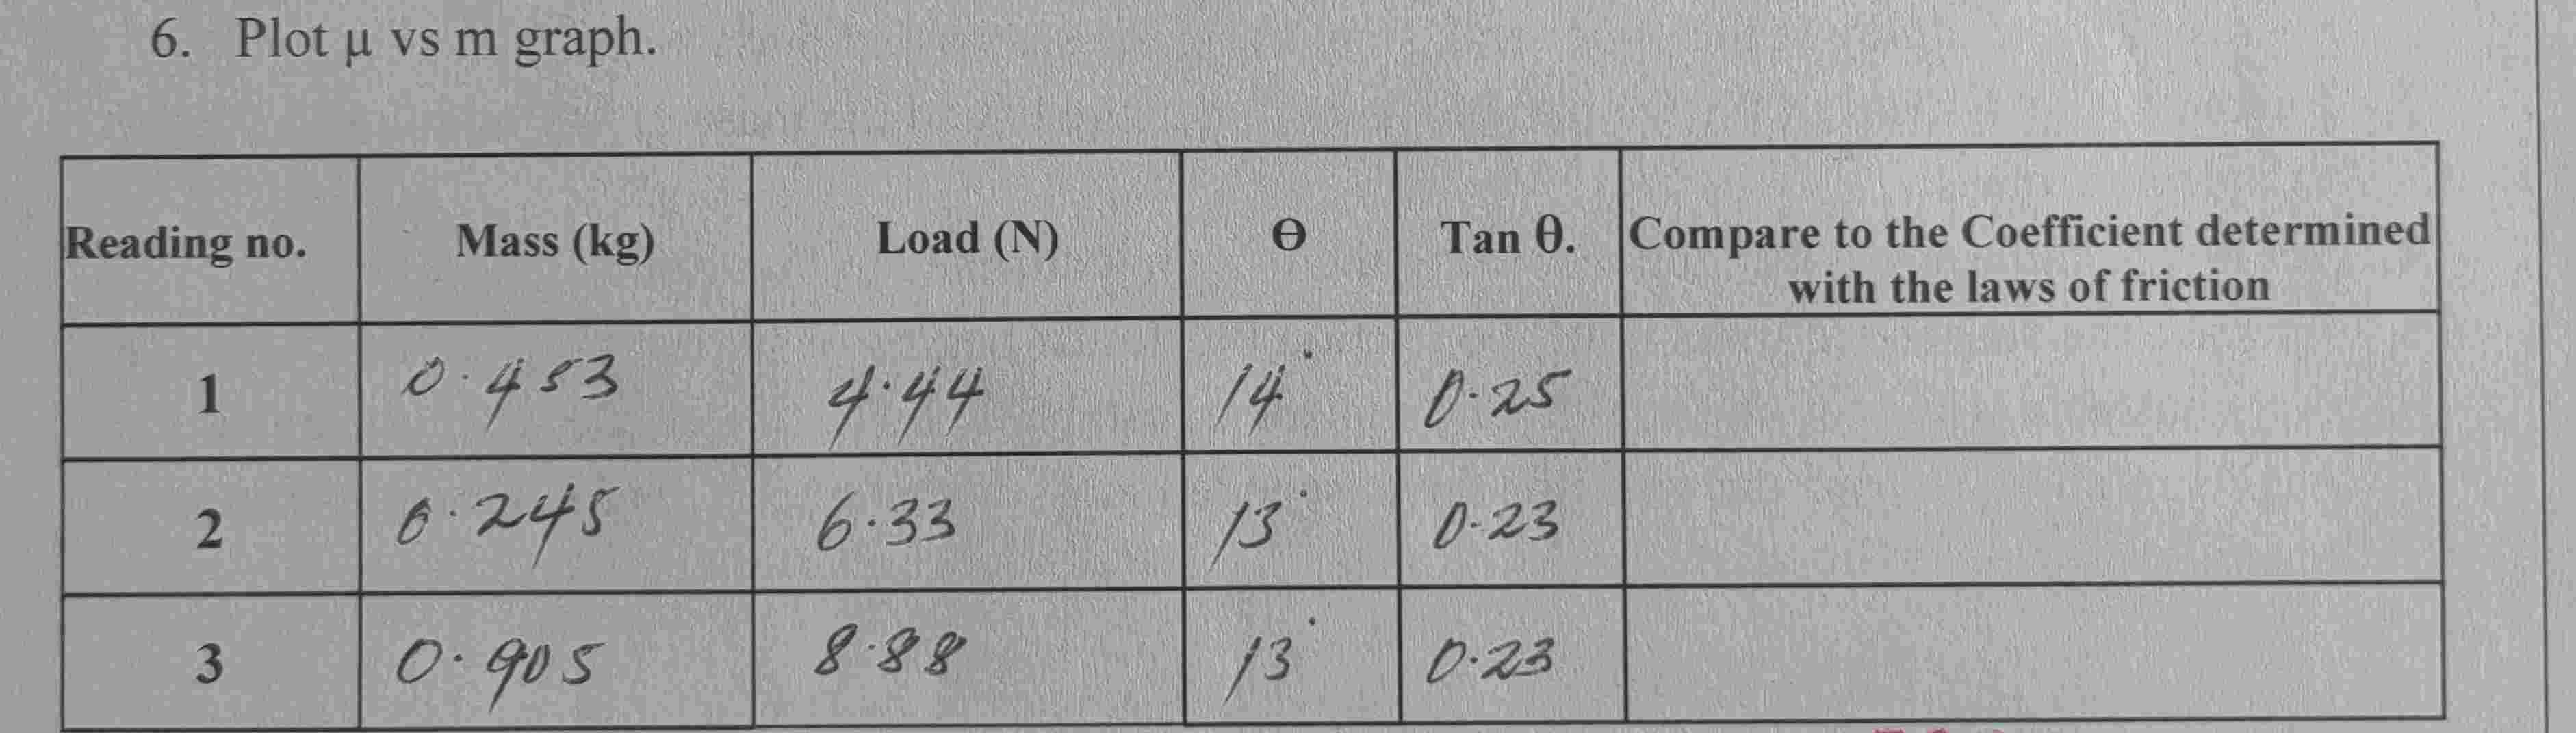 6. Plot μ vs m graph.
Reading no. Mass (kg) Load (N) Θ Tan θ. Compare to the Coefficient determined
with the laws of friction
1 0.453 4.44 14° 0.25
2 0.245 6.33 13° 0.23
3 0.905 8.88 13° 0.23